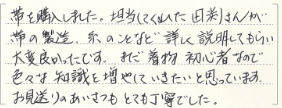 帯を購入しました。担当してくれた因幡さんが
帯の製造、糸のことなど詳しく説明してもらい
大変良かったです。まだ着物初心者なので
色々な知識を増やしていきたいと思っています。
お見送りのあいさつもとても丁寧でした。